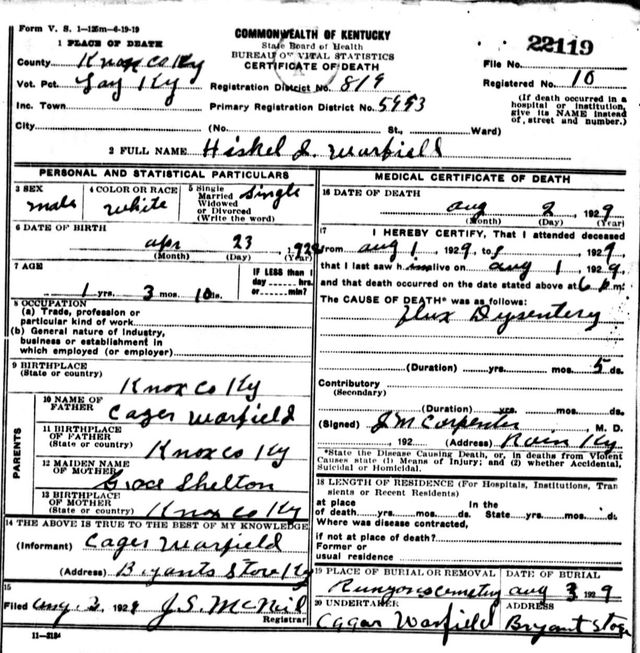 Form V. S. 1—125m—6-19-19
COMMONWEALTH OF KENTUCKY
State Board of Health
BUREAU OF VITAL STATISTICS
CERTIFICATE OF DEATH
22119
File No.
Registered No. 10
(If death occurred in a hospital or institution, give its NAME instead of street and number.)
1 PLACE OF DEATH
County Knox co Ky
Vot. Pct. Gay Ky
Inc. Town
City
Registration District No. 819
Primary Registration District No. 5993
(No. St., Ward)
2 FULL NAME Hiskel Warfield
PERSONAL AND STATISTICAL PARTICULARS
3 SEX male
4 COLOR OR RACE white
5 Single Married Widowed or Divorced (Write the word) Single
6 DATE OF BIRTH
apr 23, 192
(Month) (Day) (Year)
7 AGE
1 yrs. 3 mos. 10 ds.
IF LESS than 1 day hrs. or min?
8 OCCUPATION
(a) Trade, profession or particular kind of work
(b) General nature of industry, business or establishment in which employed (or employer)
9 BIRTHPLACE
(State or country)
Knox co Ky
PARENTS
10 NAME OF FATHER
Cager Warfield
11 BIRTHPLACE OF FATHER (State or country)
Knox co Ky
12 MAIDEN NAME OF MOTHER
Grace Shelton
13 BIRTHPLACE OF MOTHER (State or country)
Knox co Ky
14 THE ABOVE IS TRUE TO THE BEST OF MY KNOWLEDGE
(Informant) Cager Warfield
(Address) Bryants Store Ky
15
Filed Aug 3, 192 J. S. McNeil
Registrar
11—3184
MEDICAL CERTIFICATE OF DEATH
16 DATE OF DEATH
aug 2, 1929
(Month) (Day) (Year)
17 I HEREBY CERTIFY, That I attended deceased
from aug 1, 1929, to , 1929,
that I last saw h alive on aug 1, 1929,
and that death occurred on the date stated above at 6 m.
The CAUSE OF DEATH* was as follows:
Flux Dysentery
(Duration) yrs. mos. 5 ds.
Contributory
(Secondary)
(Duration) yrs. mos. ds.
(Signed) J M Carpenter, M. D.
, 192 (Address) Rain Ky
*State the Disease Causing Death, or, in deaths from Violent Causes state (1) Means of Injury; and (2) whether Accidental, Suicidal or Homicidal.
18 LENGTH OF RESIDENCE (For Hospitals, Institutions, Transients or Recent Residents)
at place of death yrs. mos. ds. In the State yrs. mos. ds.
Where was disease contracted,
if not at place of death?
Former or usual residence
19 PLACE OF BURIAL OR REMOVAL
Runyons cemetery
DATE OF BURIAL
aug 3 1929
20 UNDERTAKER
Cagar Warfield
ADDRESS
Bryant Store